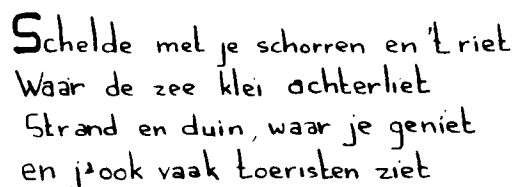 Schelde met je schorren en 't riet
Waar de zee klei achterliet
Strand en duin, waar je geniet
en j' ook vaak toeristen ziet